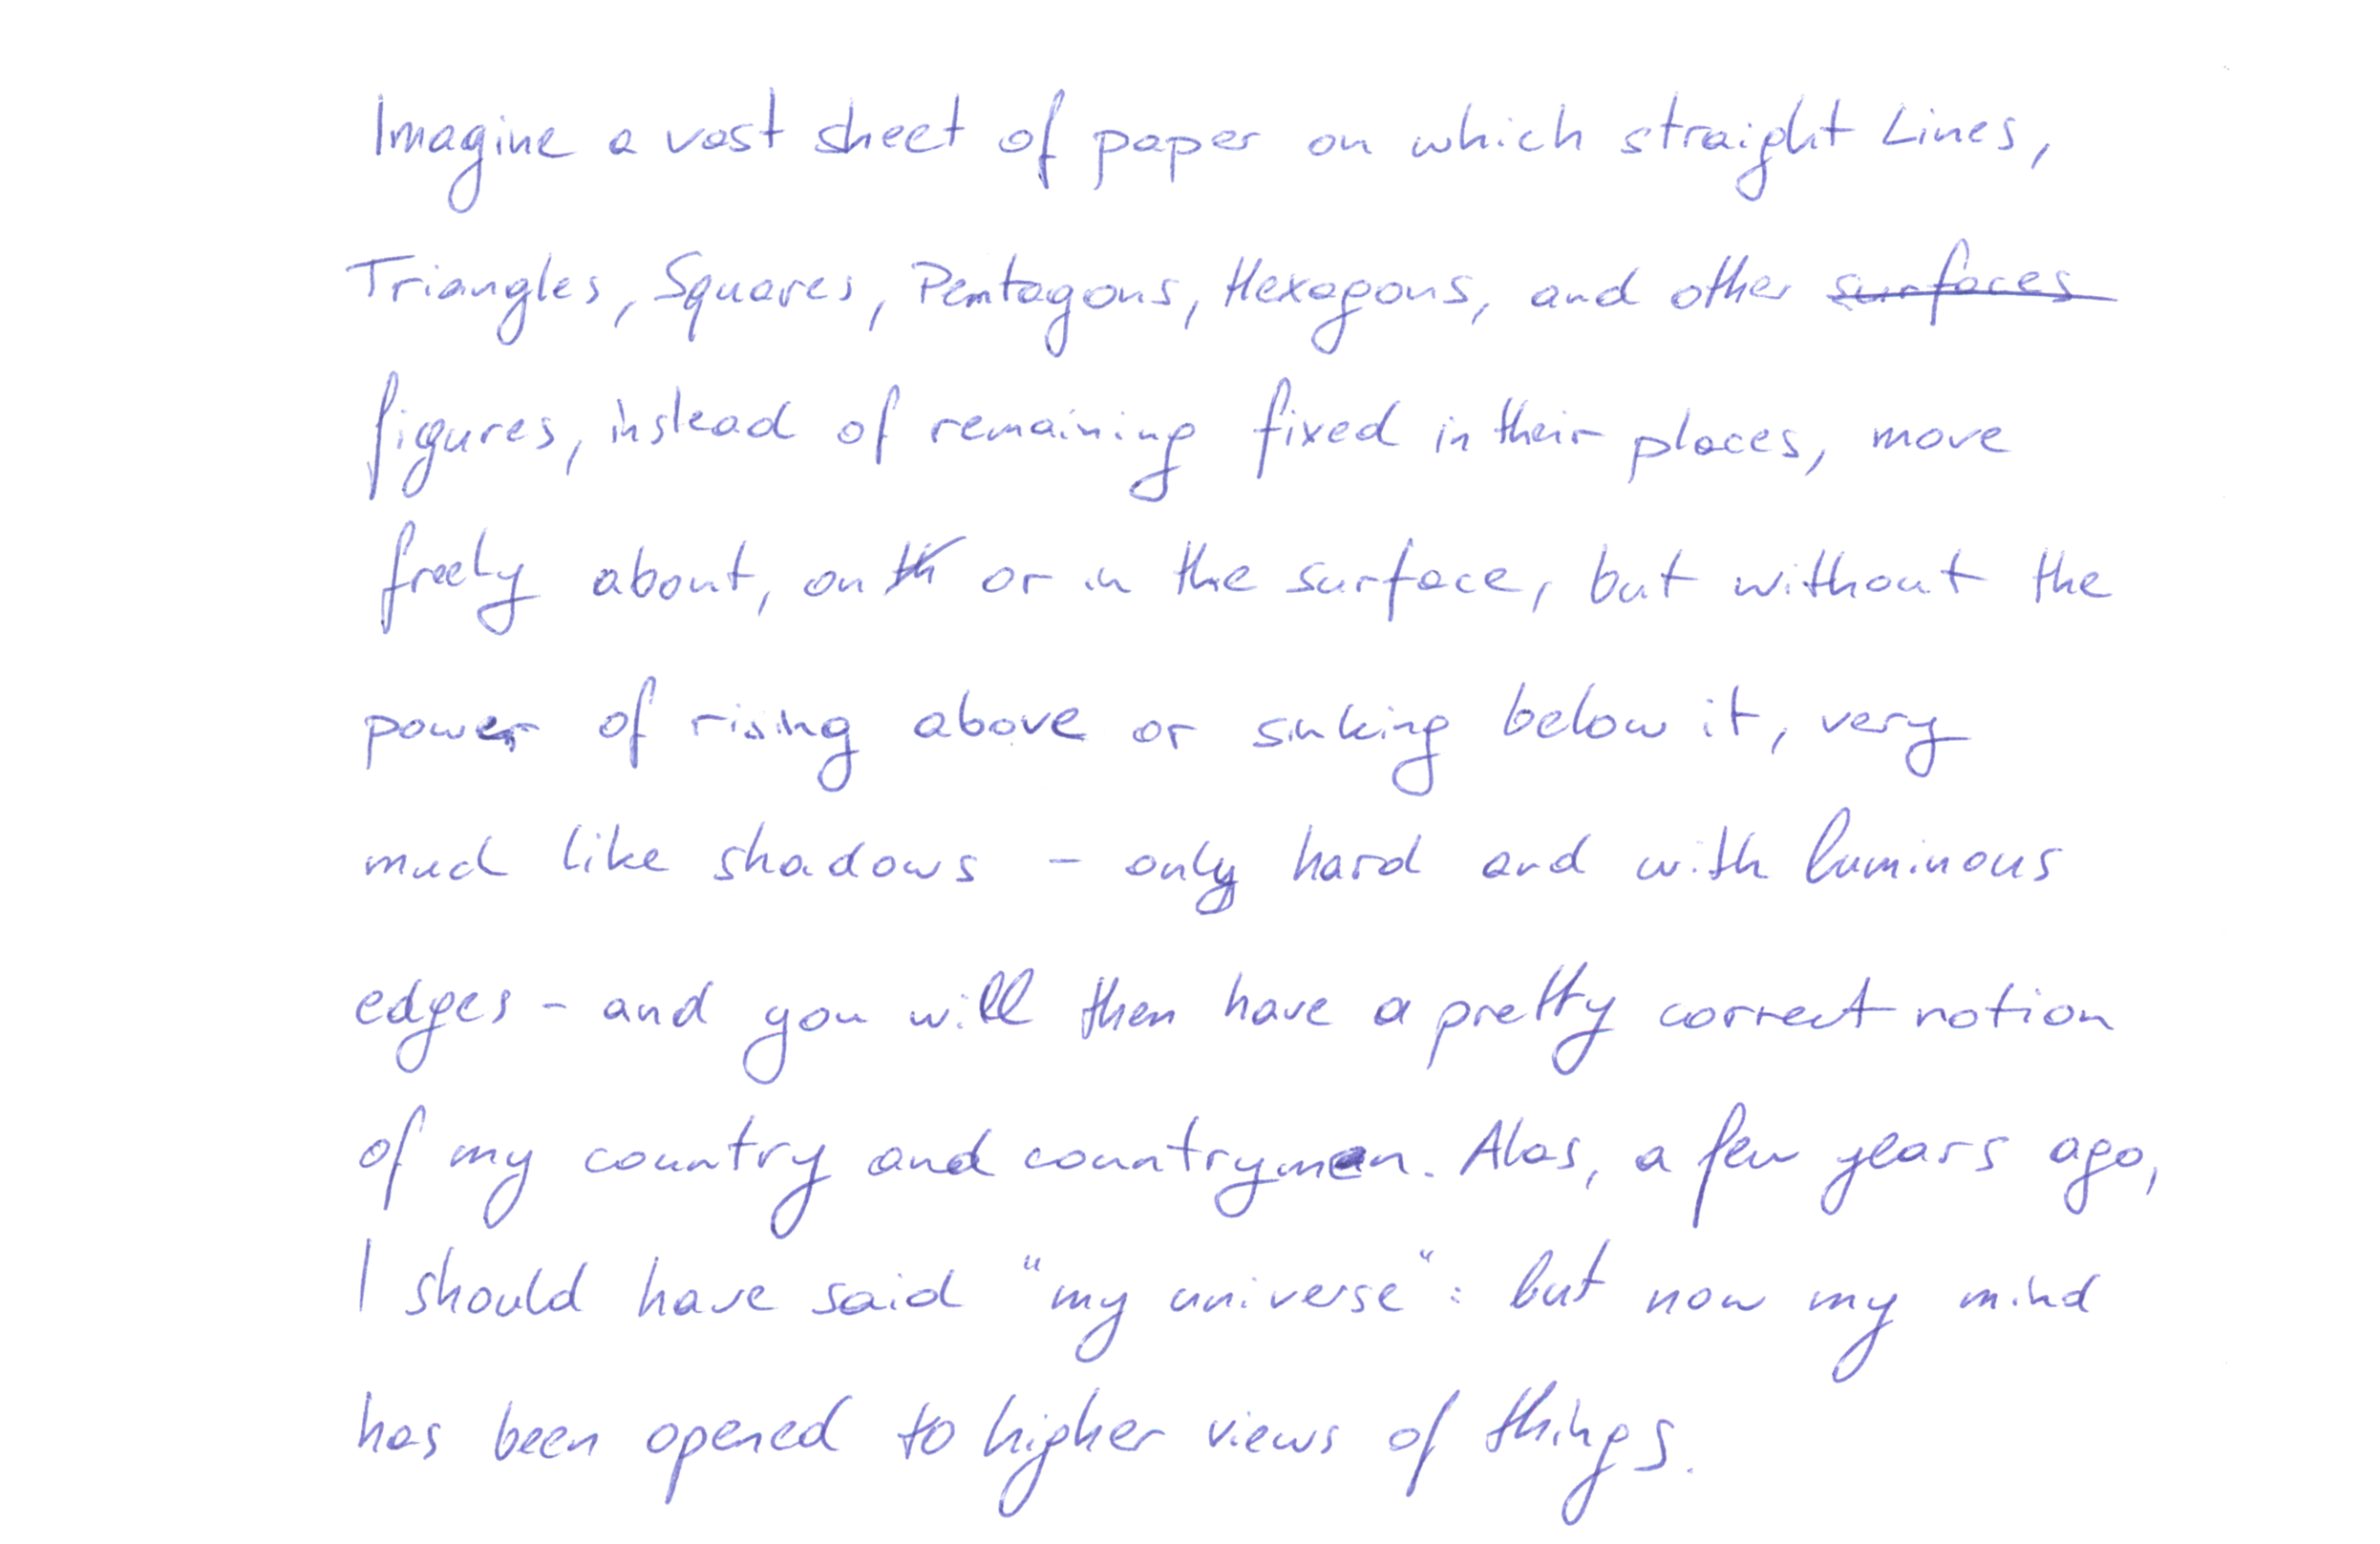 Imagine a vast sheet of paper on which straight Lines,
Triangles, Squares, Pentagons, Hexagons, and other ~~surfaces~~
figures, instead of remaining fixed in their places, move
freely about, on ~~th~~ or in the surface, but without the
power of rising above or sinking below it, very
much like shadows - only hard and with luminous
edges - and you will then have a pretty correct notion
of my country and countrymen. Alas, a few years ago,
I should have said "my universe": but now my mind
has been opened to higher views of things.